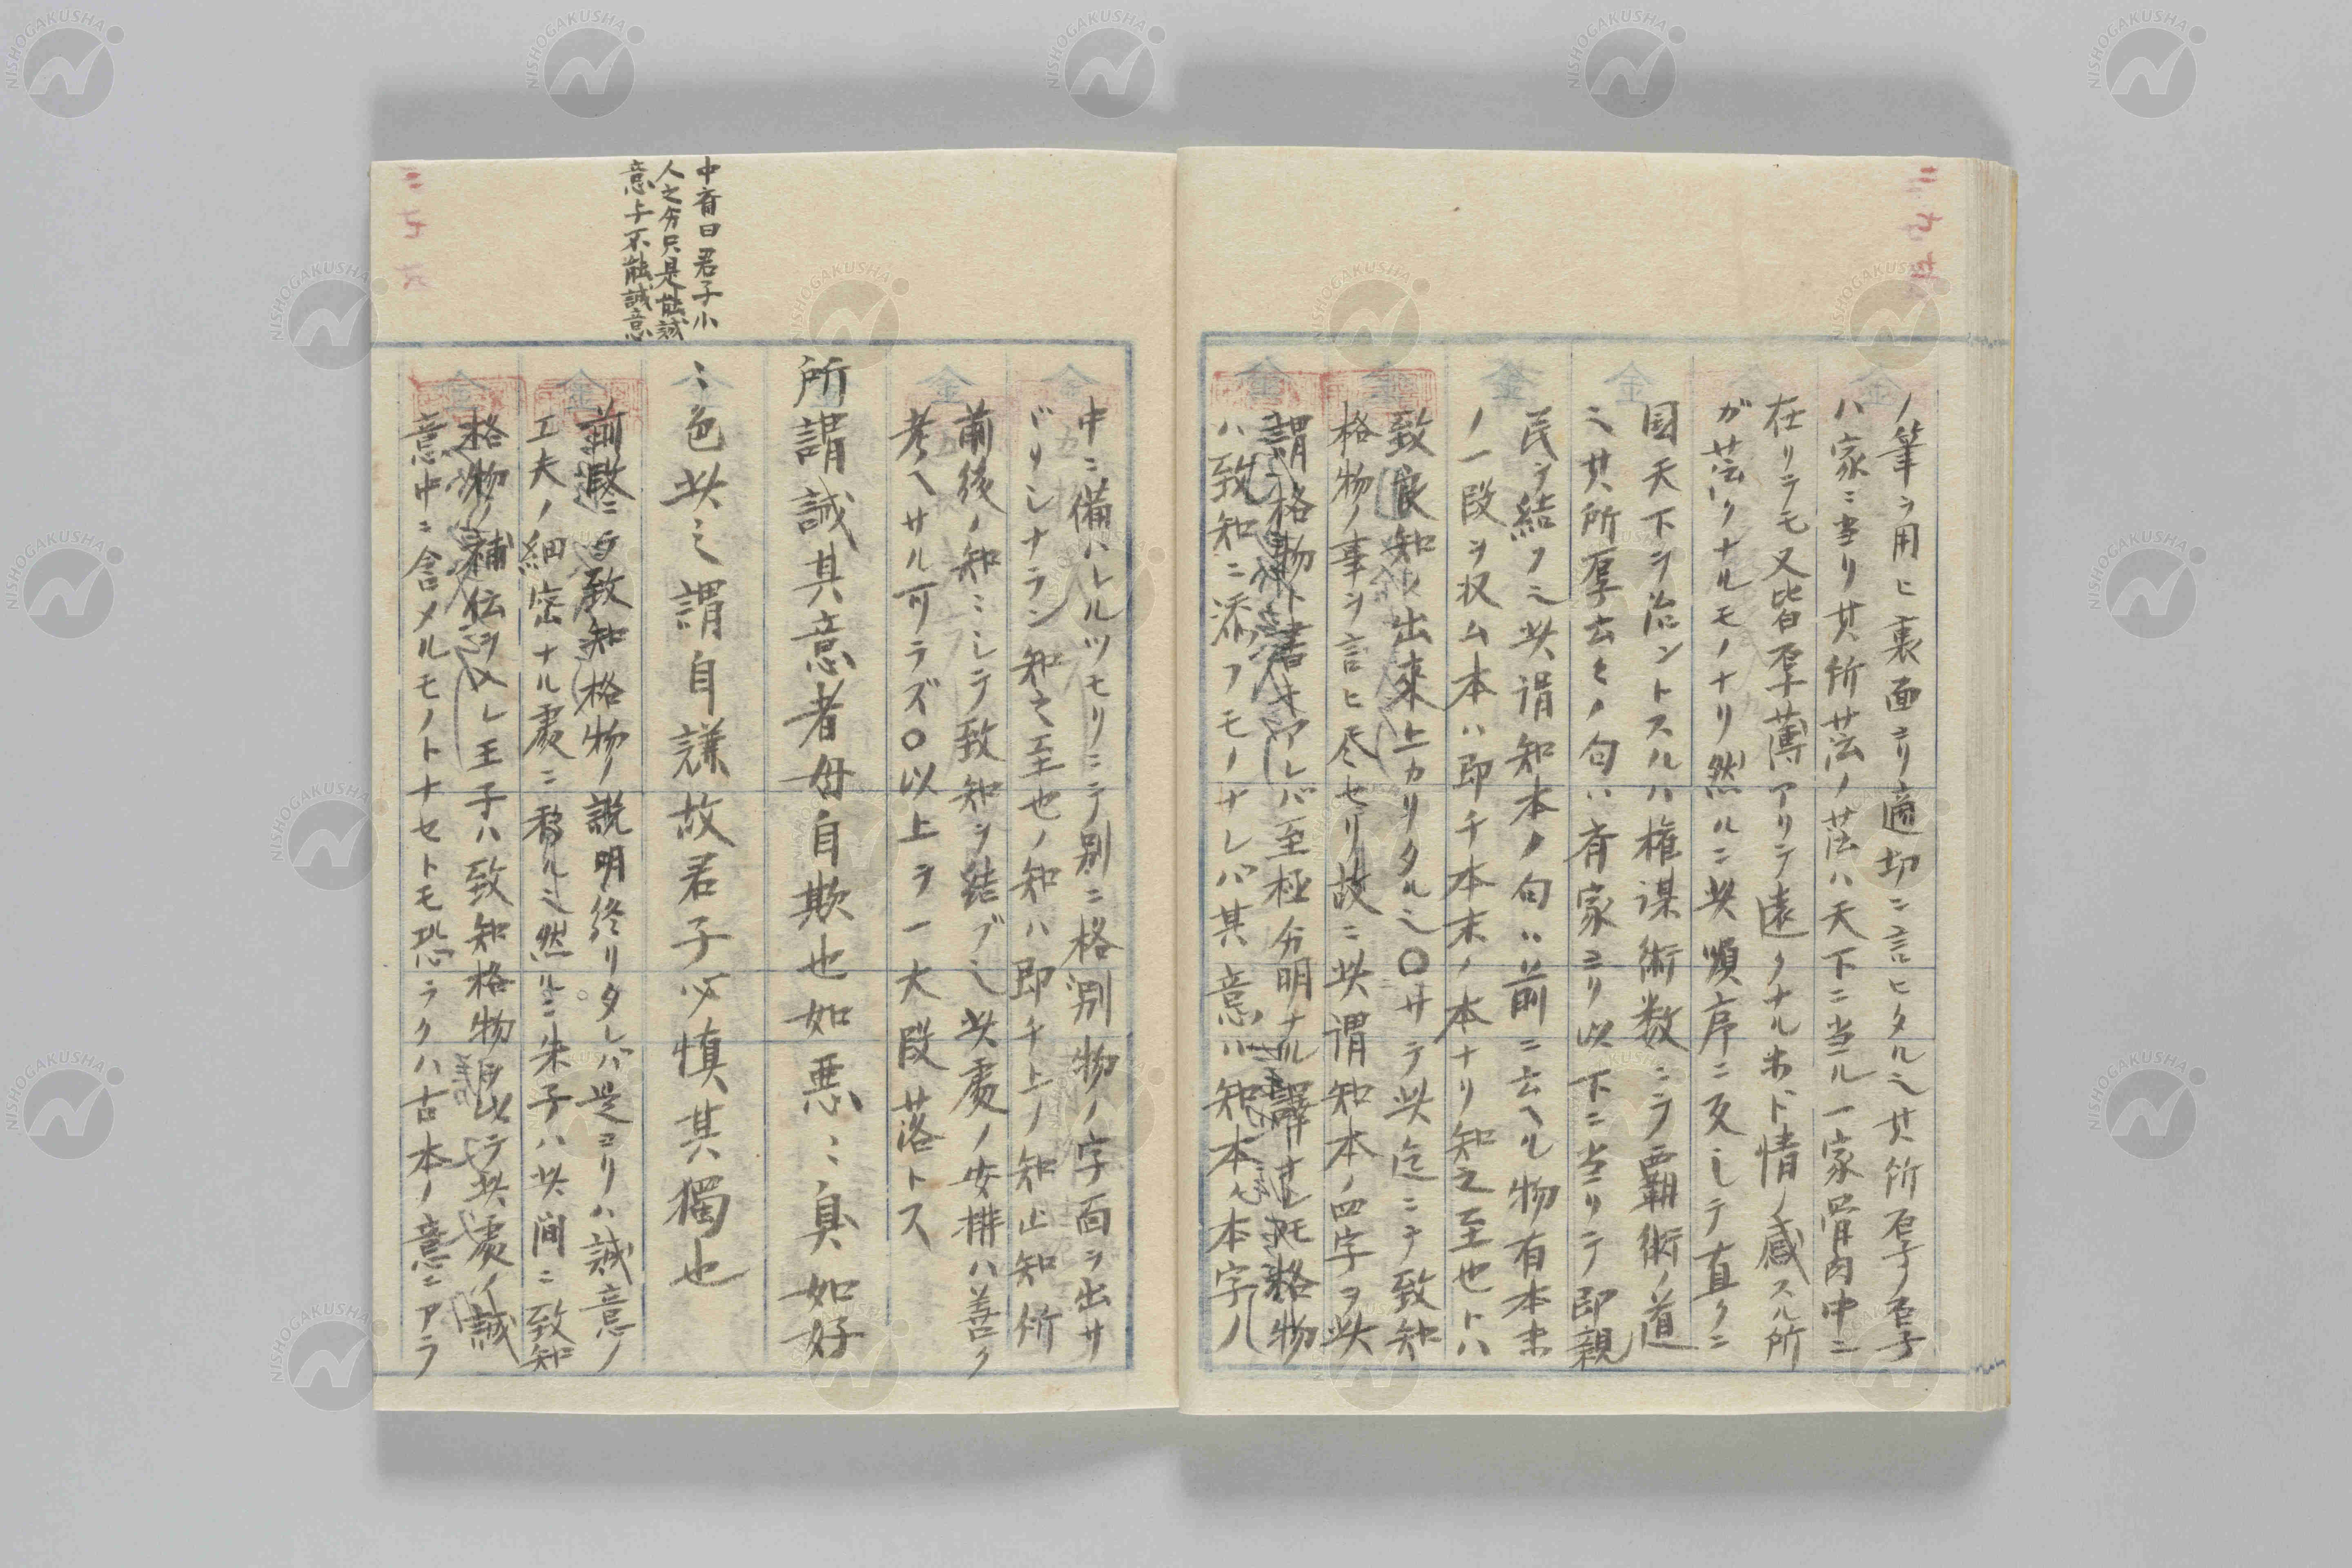 ノ筆ヲ用ヒ裏面ヨリ適切ニ言ヒタル也其所厚ノ厚
ハ家ニ当リ其所薄ノ薄ハ天下ニ当ル一家骨肉中ニ
在リテモ又皆厚薄アリテ遠クナルホド情ノ感スル所
ガ薄クナルモノナリ然ルニ此順序ニ反シテ直クニ
国天下ヲ治ントスルハ権謀術数ニテ覇術ノ道
也其所厚云々ノ句ハ斉家ヨリ以下ニ当リテ即親
民ヲ結フ也此謂知本ノ句ハ前ニ云ヘル物有本末
ノ一段ヲ収ム本ハ即チ本末ノ本ナリ知之至也トハ
致良知ノ出来上カリタル也〇サテ此迄ニテ致知
格物ノ事ヲ言ヒ尽セリ故ニ此謂知本ノ四字ヲ此
謂格物ト書キアレバ至極分明ナル訳ナレ𪜈格物
ハ致知ニ添フモノナレバ其意ハ知本ノ本字ノ
中ニ備ハレルツモリニテ別ニ格別物ノ字面ヲ出サ
ザリシナラン知之至也ノ知ハ即チ上ノ知止知所
前後ノ知ニシテ致知ヲ結ブ也此処ノ安排ハ善ク
考ヘサル可ラズ〇以上ヲ一大段落トス
中斉曰君子小
人之分只是能誠
意与不能誠意
所謂誠其意者毋自欺也如悪〻臭如好
〻色此之謂自謙故君子必慎其獨也
前段ニ致知格物ノ説明終リタレバ是ヨリハ誠意ノ
工夫ノ細密ナル処ニ移ル也然ルニ朱子ハ此間ニ致知
格物ノ補伝ヲ入レ王子ハ致知格物ヲ以テ此処ノ誠
意中ニ含メルモノトナセトモ恐ラクハ古本ノ意ニアラ